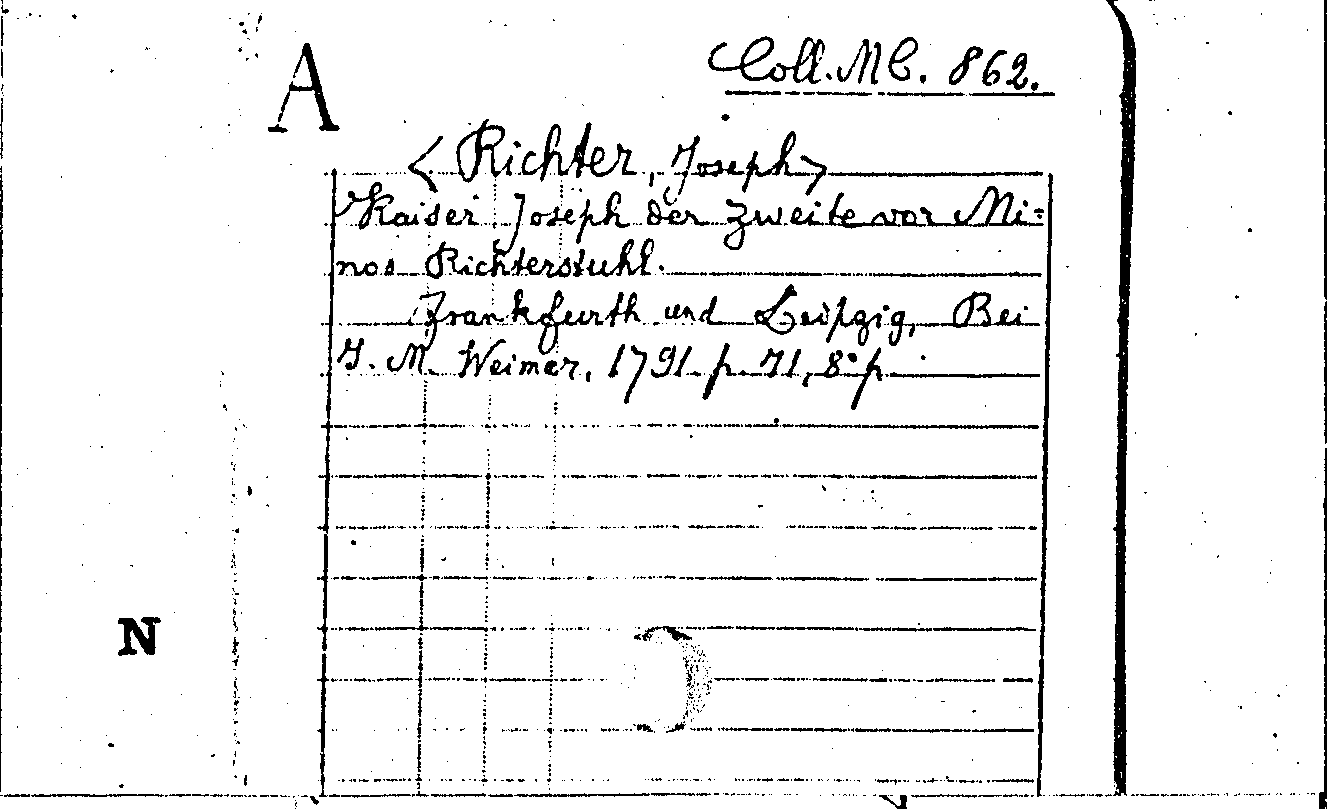 A
Coll. M C. 862.
< Richter, Joseph >
Kaiser Joseph der zweite vor Mi=
nos Richterstuhl.
Frankfurth und Leipzig, Bei
J. M. Weimer, 1791. p. 71, 8° p.
N